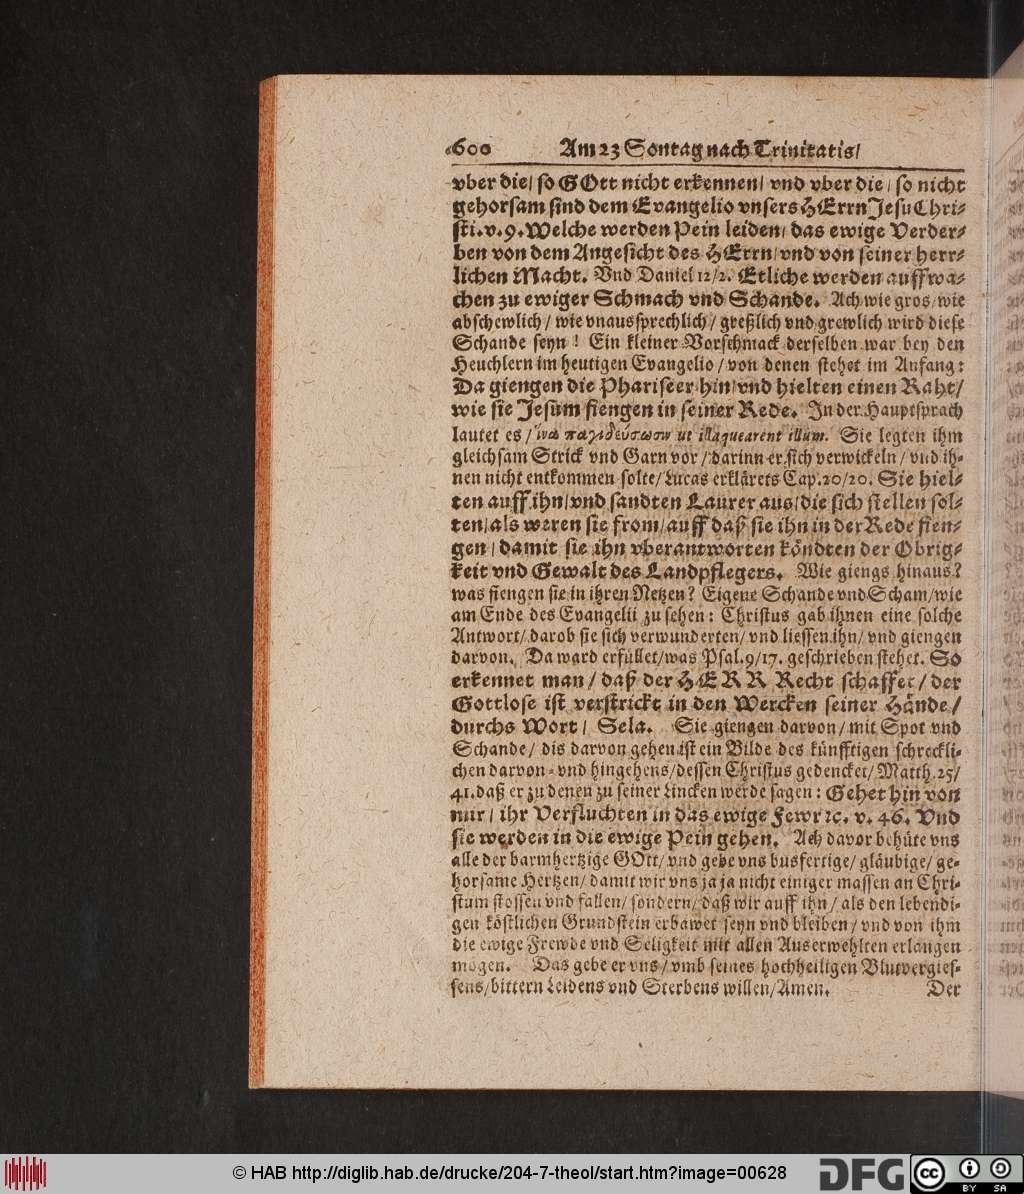 600 Am 23 Sontag nach Trinitatis/
vber die/ so GOtt nicht erkennen/ vnd vber die/ so nicht
gehorsam sind dem Evangelio vnsers HErrn Jesu Chri-
sti. v. 9. Welche werden Pein leiden/ das ewige Verder-
ben von dem Angesicht des HErrn/ vnd von seiner herr-
lichen Macht. Vnd Daniel 12/2. Etliche werden auffwa-
chen zu ewiger Schmach vnd Schande. Ach wie gros/ wie
abschewlich/ wie vnaussprechlich/ greßlich vnd grewlich wird diese
Schande seyn! Ein kleiner Vorschmack derselben war bey den
Heuchlern im heutigen Evangelio/ von denen stehet im Anfang:
Da giengen die Phariseer hin/ vnd hielten einen Raht/
wie sie Jesum fiengen in seiner Rede. In der Hauptsprach
lautet es/ ἵνα παγιδεύσωσιν ut illaquearent illum. Sie legten ihm
gleichsam Strick vnd Garn vor/ darinn er sich verwickeln/ vnd ih-
nen nicht entkommen solte/ Lucas erklärets Cap. 20/20. Sie hiel-
ten auff ihn/ vnd sandten Laurer aus/ die sich stellen sol-
ten/ als weren sie from/ auff daß sie ihn in der Rede fien-
gen/ damit sie ihn vberantworten köndten der Obrig-
keit vnd Gewalt des Landpflegers. Wie giengs hinaus?
was fiengen sie in ihren Netzen? Eigene Schande vnd Scham/ wie
am Ende des Evangelii zu sehen: Christus gab ihnen eine solche
Antwort/ darob sie sich verwunderten/ vnd liessen ihn/ vnd giengen
darvon. Da ward erfüllet/ was Psal. 9/17. geschrieben stehet. So
erkennet man/ daß der HERR Recht schaffet/ der
Gottlose ist verstrickt in den Wercken seiner Hände/
durchs Wort/ Sela. Sie giengen darvon/ mit Spot vnd
Schande/ dis darvon gehen ist ein Bilde des künfftigen schreckli-
chen darvon- vnd hingehens/ dessen Christus gedencket/ Matth. 25/
41. daß er zu denen zu seiner Lincken werde sagen: Gehet hin von
mir/ ihr Verfluchten in das ewige Fewr ꝛc. v. 46. Vnd
sie werden in die ewige Pein gehen. Ach davor behüte vns
alle der barmhertzige GOtt/ vnd gebe vns busfertige/ gläubige/ ge-
horsame Hertzen/ damit wir vns ja ja nicht einiger massen an Chri-
stum stossen vnd fallen/ sondern/ daß wir auff ihn/ als den lebendi-
gen köstlichen Grundstein erbawet seyn vnd bleiben/ vnd von ihm
die ewige Frewde vnd Seligkeit mit allen Auserwehlten erlangen
mögen. Das gebe er vns/ vmb seines hochheiligen Blutvergies-
sens/ bittern Leidens vnd Sterbens willen/ Amen. Der
© HAB http://diglib.hab.de/drucke/204-7-theol/start.htm?image=00628
DFG
cc BY SA